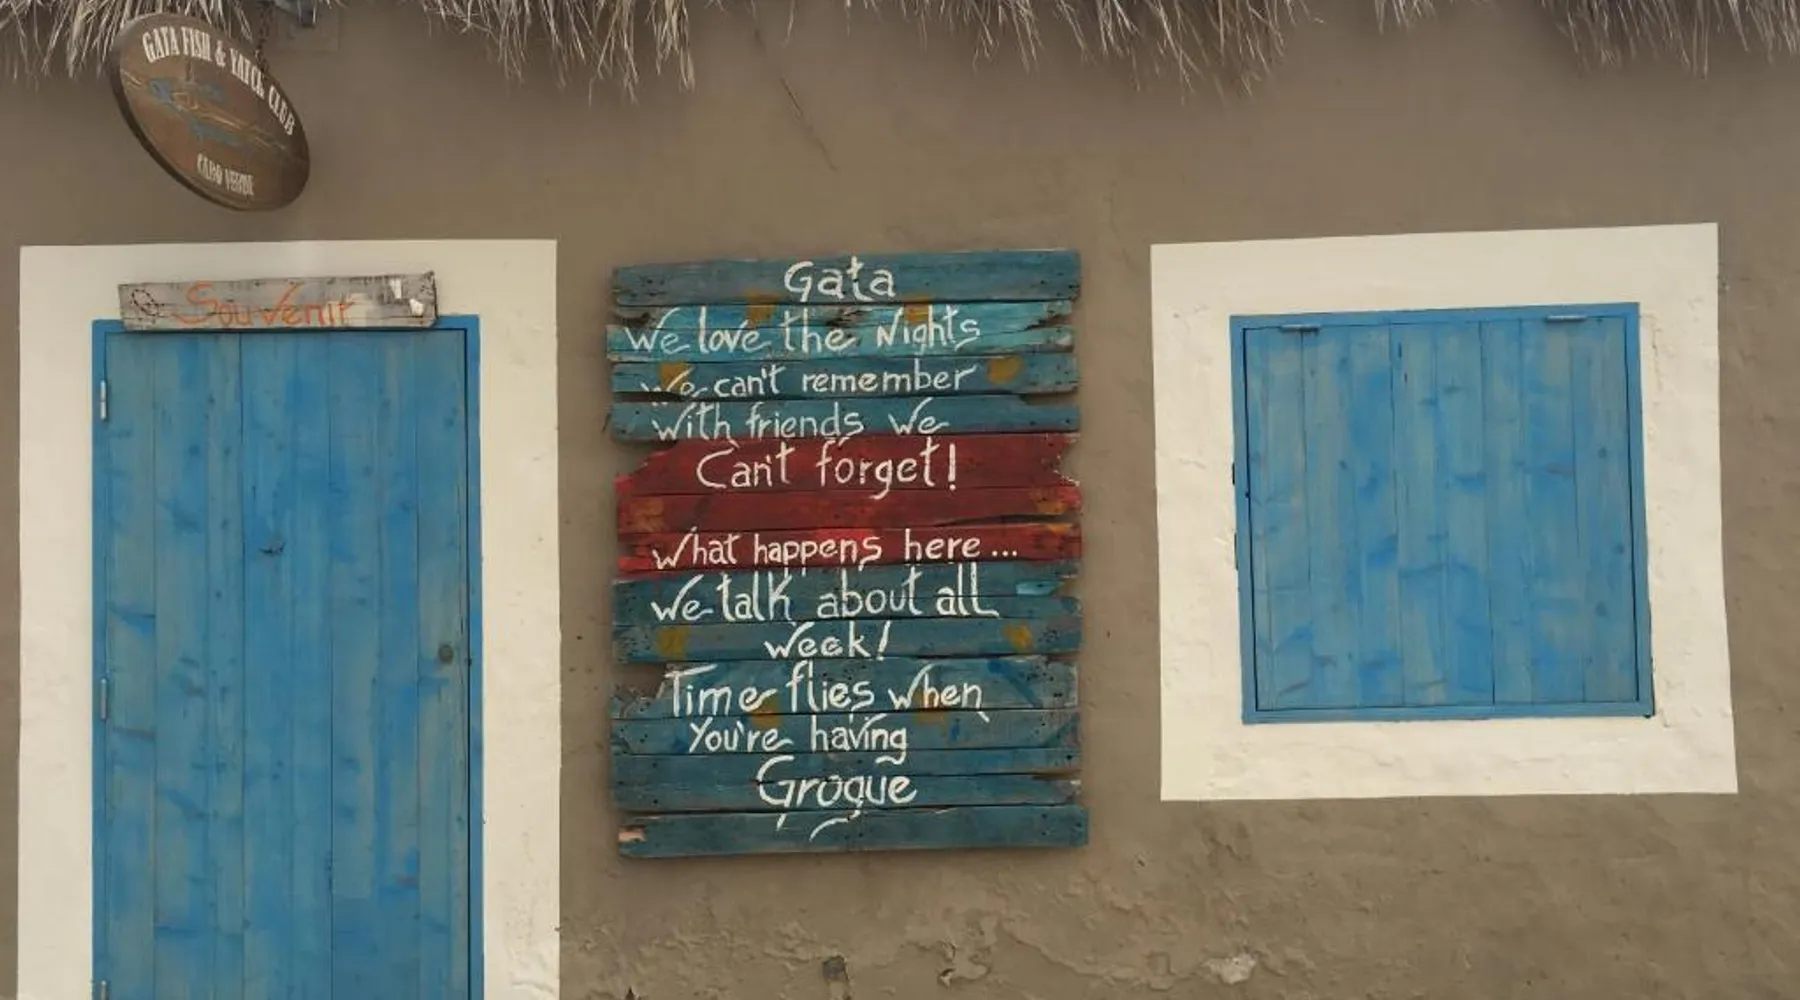 GATA FISH & YATCH CLUB
CABO VERDE
Souvenir
Gata
We love the Nights
We can't remember
With friends we
Can't forget!
What happens here...
We talk about all
week!
Time flies when
You're having
Grogue